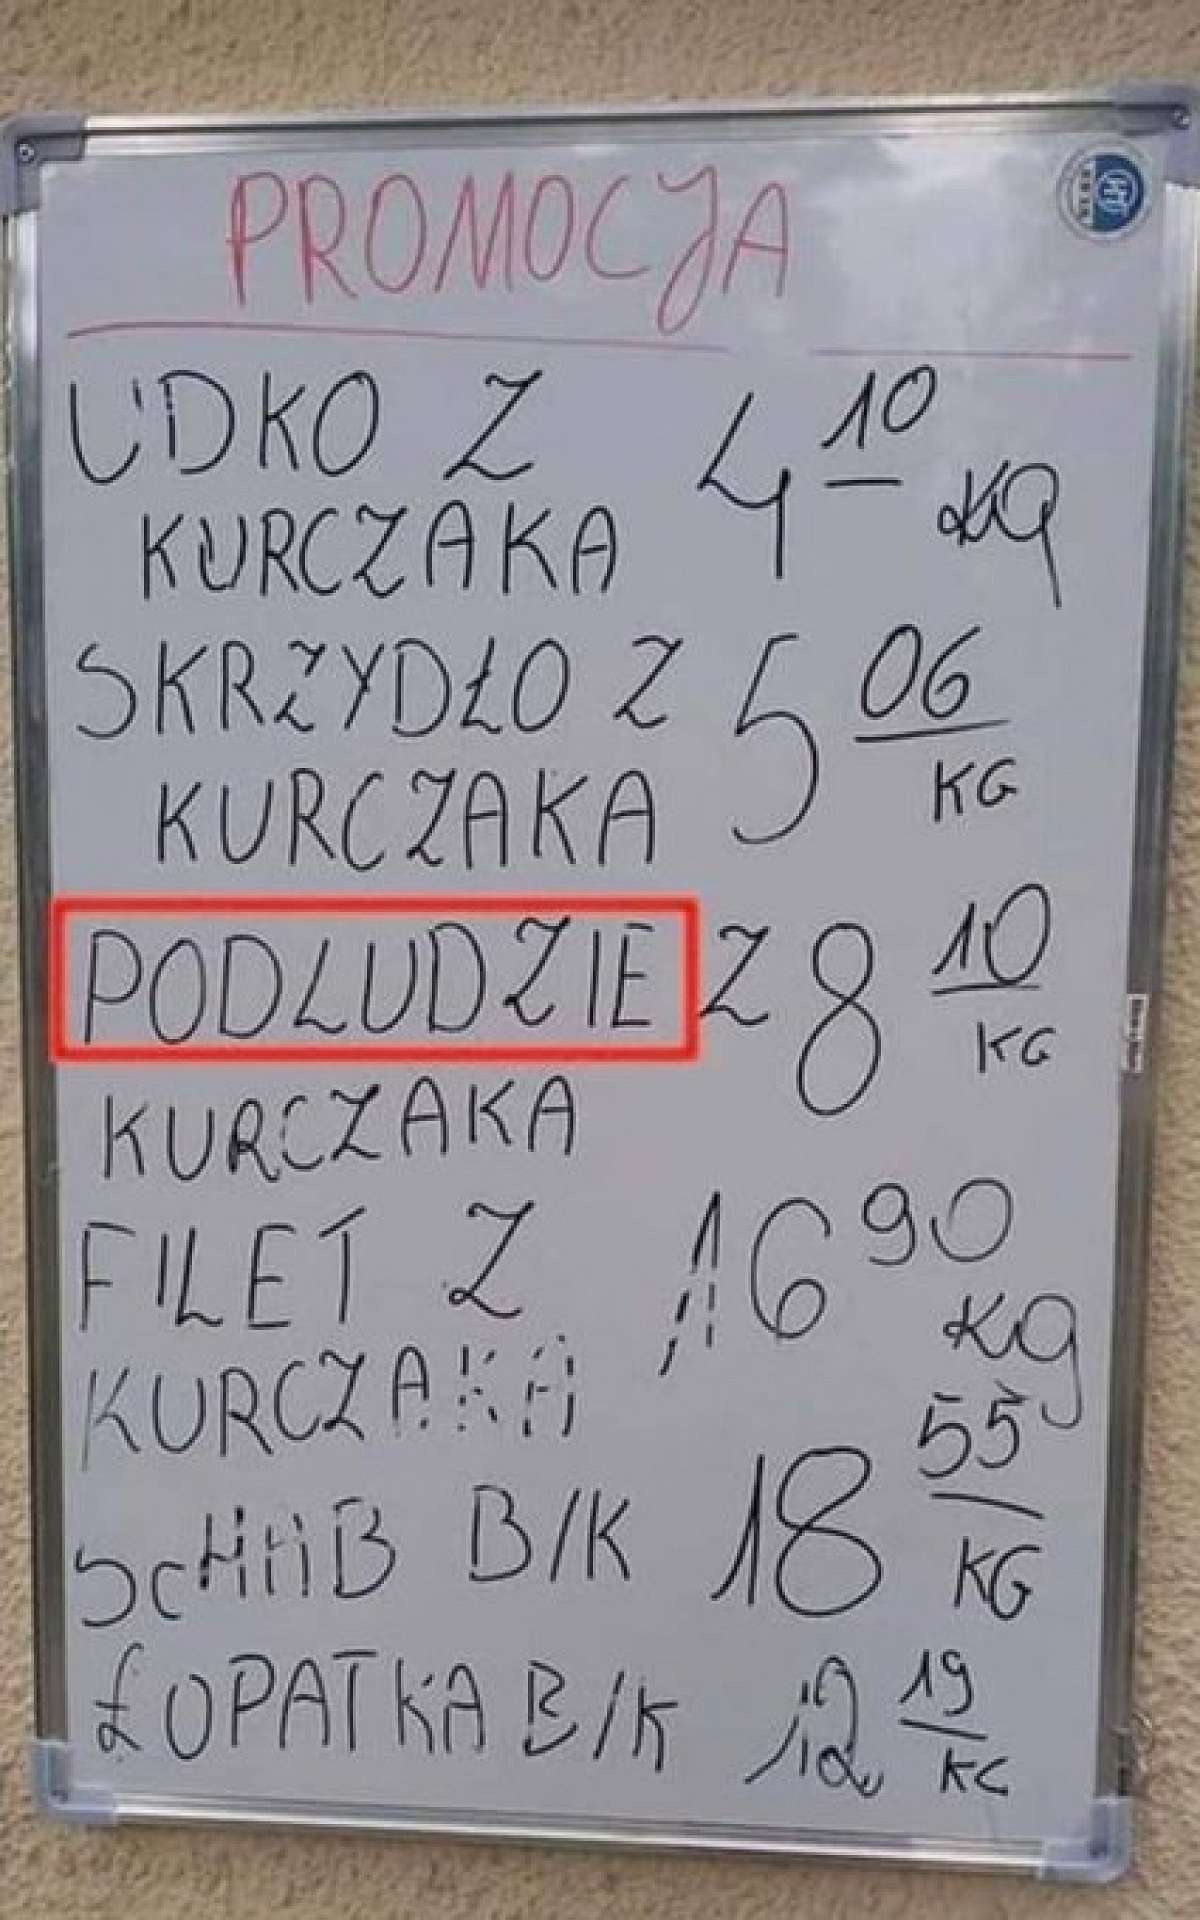 PROMOCJA
UDKO Z 4 10
KURCZAKA KG
SKRZYDŁO Z 5 06
KURCZAKA KG
PODLUDZIE Z 8 10
KURCZAKA KG
FILET Z 16 90
KURCZAKA KG
SCHAB B/K 18 55
KG
ŁOPATKA B/K 12 19
KG